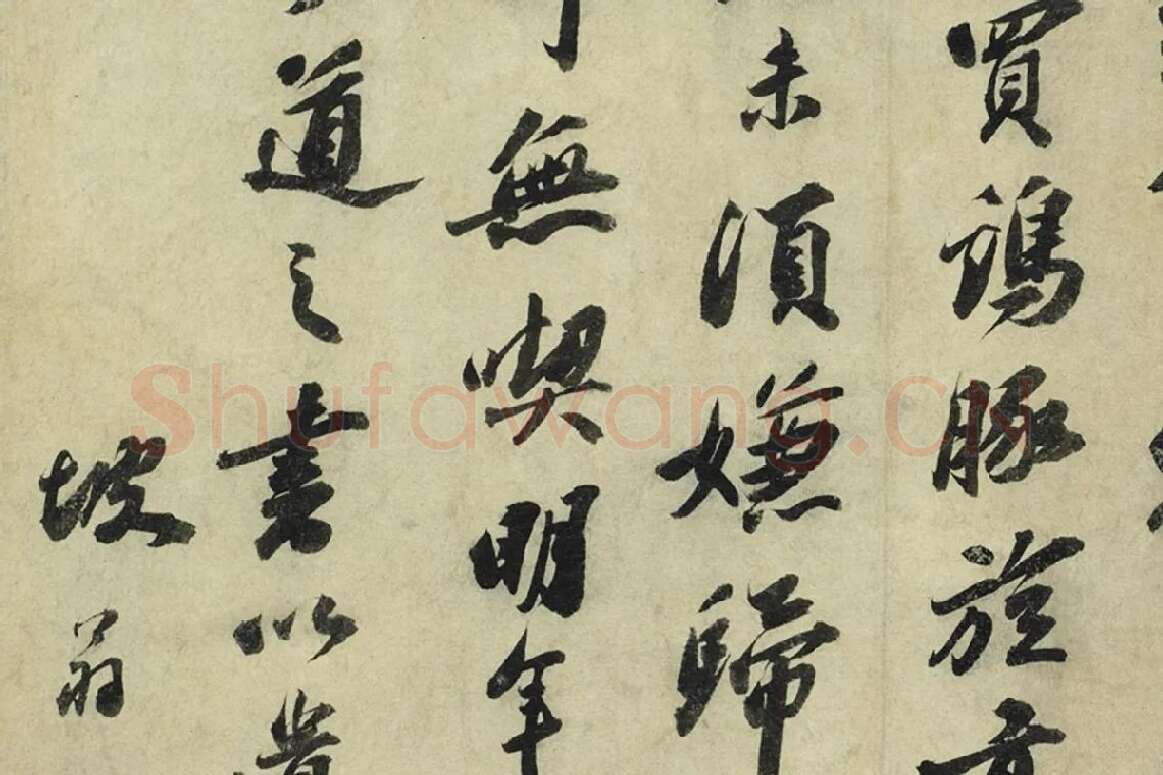 買豚旋
未須嫌歸
無喫明年
道之書以
坡翁
Shufawang.CN